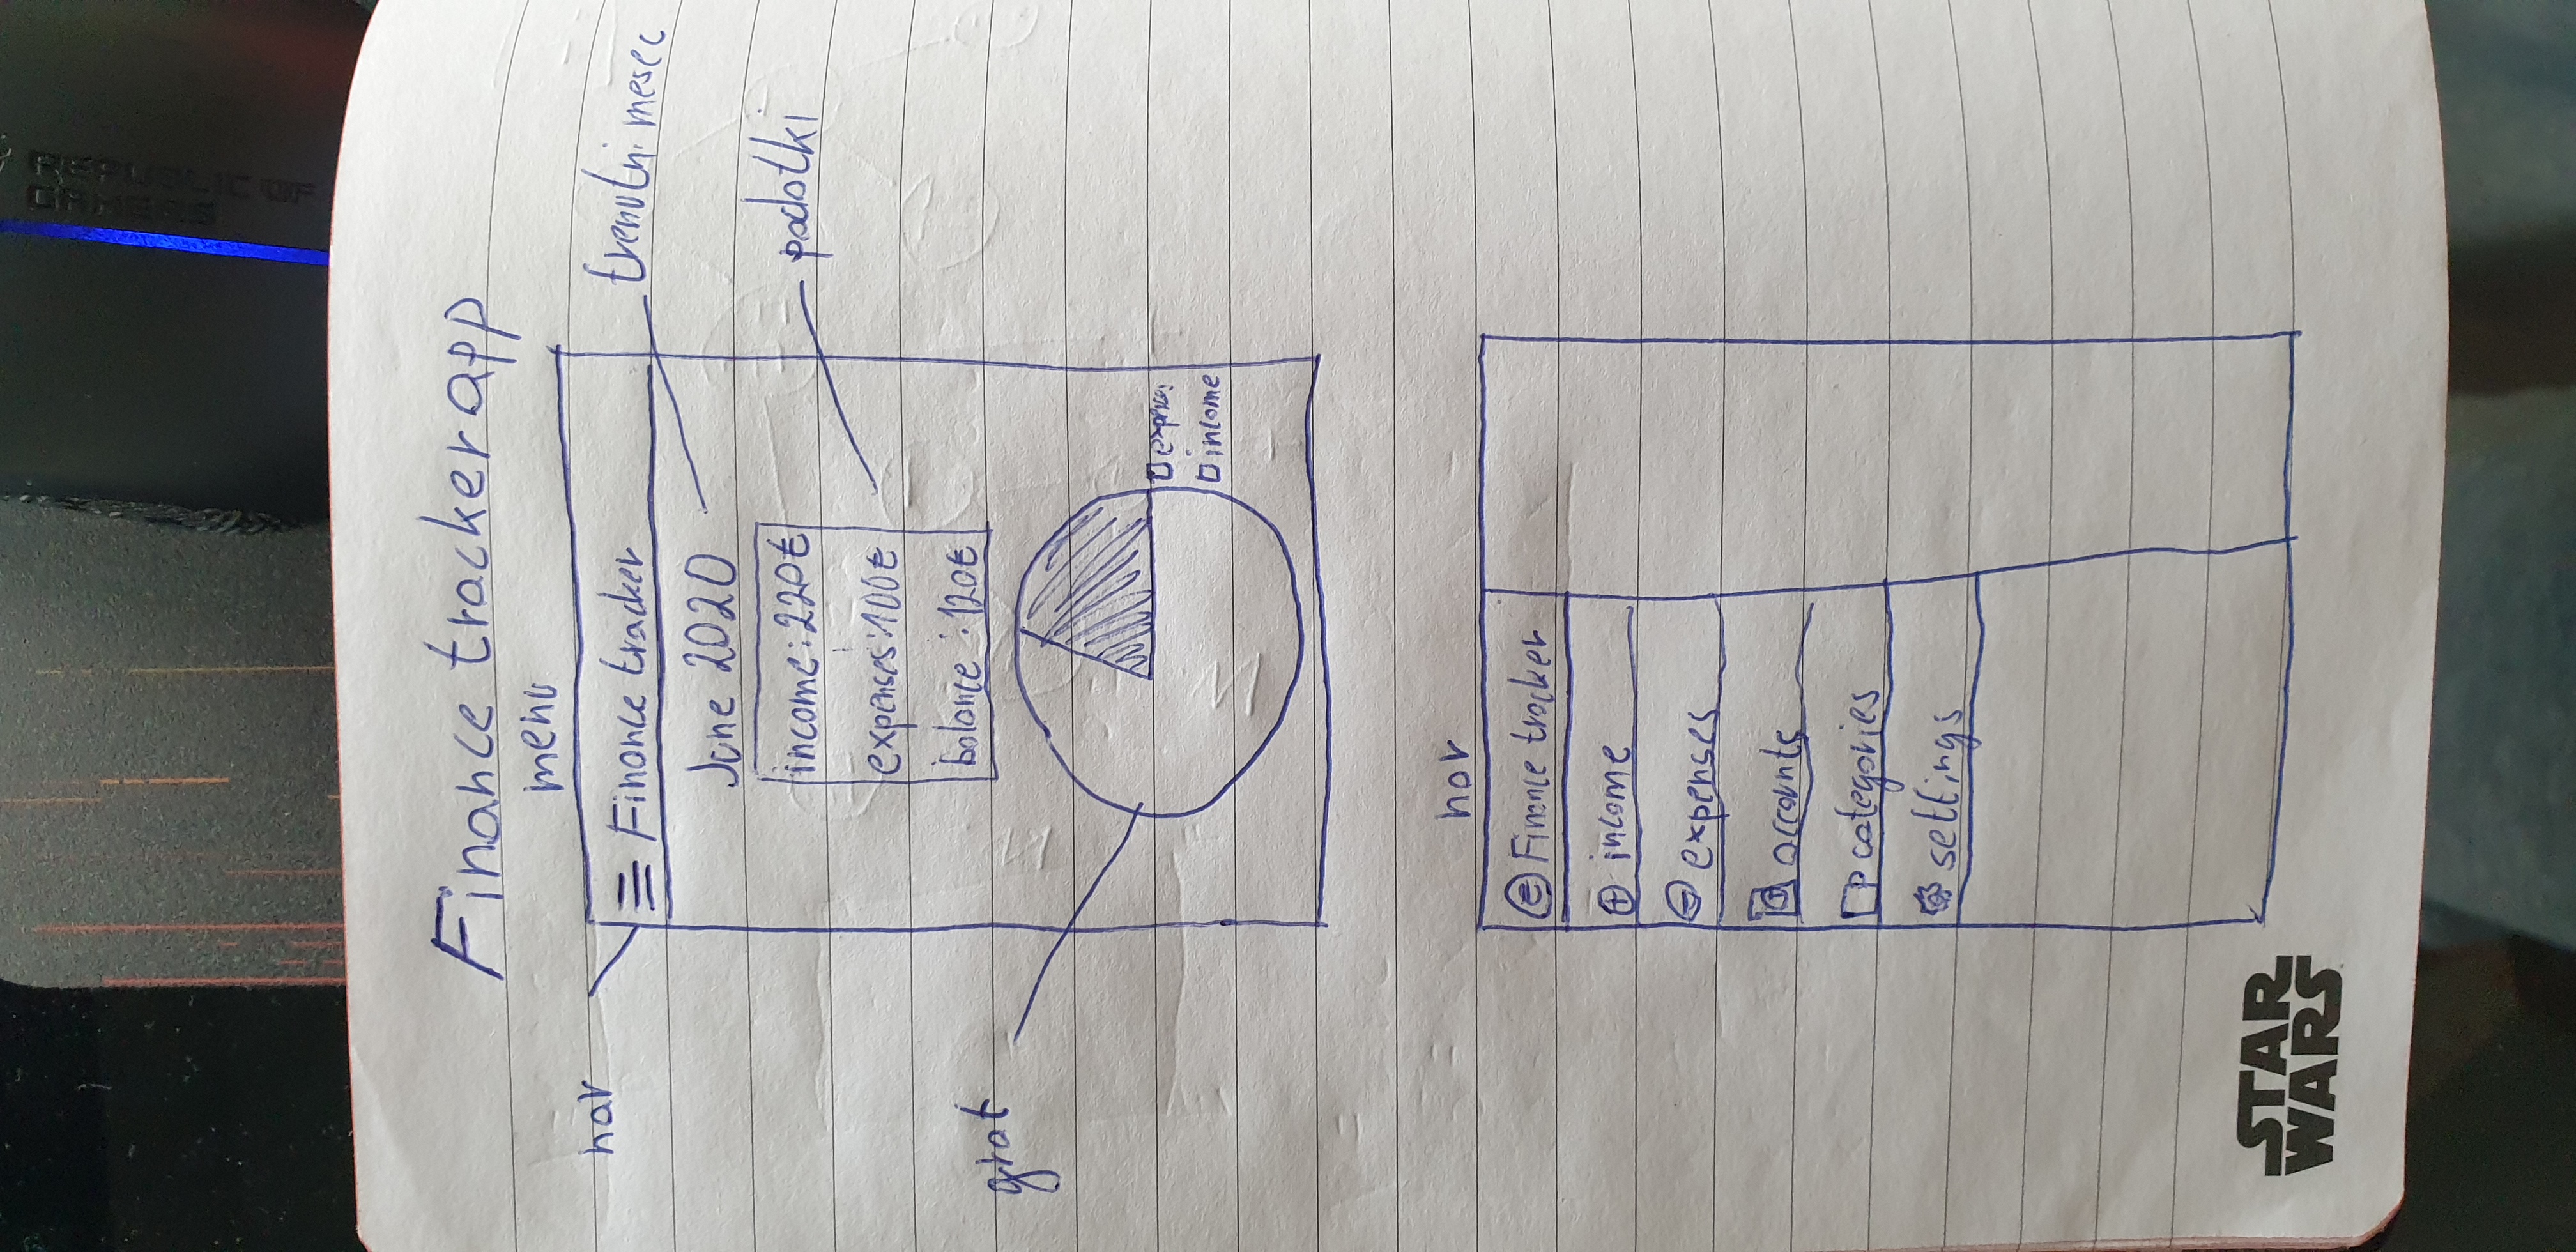 REPUBLIC OF
GAMERS
Finance tracker app
menu
nav
Finance tracker
trenutni mesec
June 2020
income: 220€
podatki
expenses: 100€
balance : 120€
graf
expenses
income
nav
Finance tracker
income
expenses
accounts
categories
settings
STAR
WARS